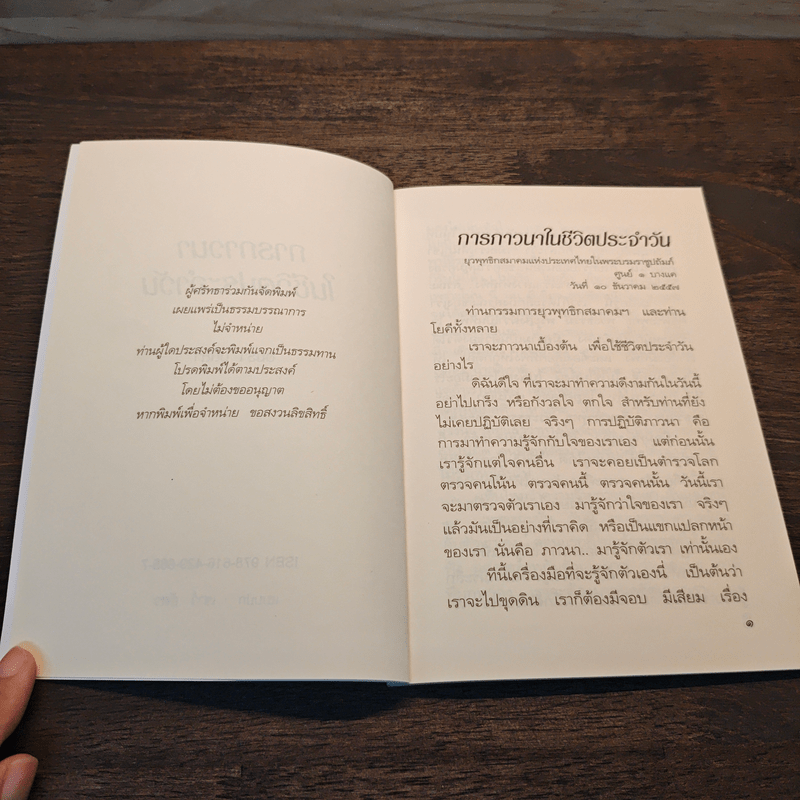 ผู้ศรัทธาร่วมกันจัดพิมพ์
เผยแพร่เป็นธรรมบรรณาการ
ไม่จำหน่าย
ท่านผู้ใดประสงค์จะพิมพ์แจกเป็นธรรมทาน
โปรดพิมพ์ได้ตามประสงค์
โดยไม่ต้องขออนุญาต
หากพิมพ์เพื่อจำหน่าย ขอสงวนลิขสิทธิ์
การภาวนาในชีวิตประจำวัน
ยุวพุทธิกสมาคมแห่งประเทศไทยในพระบรมราชูปถัมภ์
ศูนย์ ๑ บางแค
วันที่ ๑๐ ธันวาคม ๒๕๕๗
ท่านกรรมการยุวพุทธิกสมาคมฯ และท่าน
โยคีทั้งหลาย
เราจะภาวนาเบื้องต้น เพื่อใช้ชีวิตประจำวัน
อย่างไร
ดิฉันดีใจ ที่เราจะมาทำความดีงามกันในวันนี้
อย่าไปเกร็ง หรือกังวลใจ ตกใจ สำหรับท่านที่ยัง
ไม่เคยปฏิบัติเลย จริงๆ การปฏิบัติภาวนา คือ
การมาทำความรู้จักกับใจของเราเอง แต่ก่อนนั้น
เรารู้จักแต่ใจคนอื่น เราจะคอยเป็นตำรวจโลก
ตรวจคนโน้น ตรวจคนนี้ ตรวจคนนั้น วันนี้เรา
จะมาตรวจตัวเราเอง มารู้จักว่าใจของเรา จริงๆ
แล้วมันเป็นอย่างที่เราคิด หรือเป็นแขกแปลกหน้า
ของเรา นั่นคือ ภาวนา.. มารู้จักตัวเรา เท่านั้นเอง
ทีนี้เครื่องมือที่จะรู้จักตัวเองนี่ เป็นต้นว่า
เราจะไปขุดดิน เราก็ต้องมีจอบ มีเสียม เรื่อง
๑